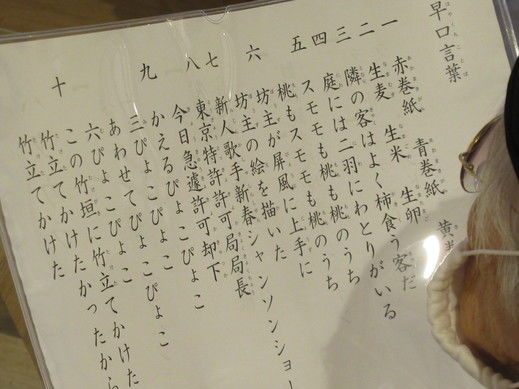 早口言葉
一 赤巻紙 青巻紙 黄
二 生麦 生米 生卵
三 隣の客はよく柿食う客だ
四 庭には二羽にわとりがいる
五 スモモも桃も桃のうち
桃もスモモも桃のうち
六 坊主が屏風に上手に
坊主の絵を描いた
七 新人歌手新春シャンソンショー
八 東京特許許可局局長
今日急遽許可却下
九 かえるぴょこぴょこ
三ぴょこぴょこ
あわせてぴょこぴょこ
六ぴょこぴょこ
十 この竹垣に竹立てかけた
竹立てかけたかったから
竹立てかけた